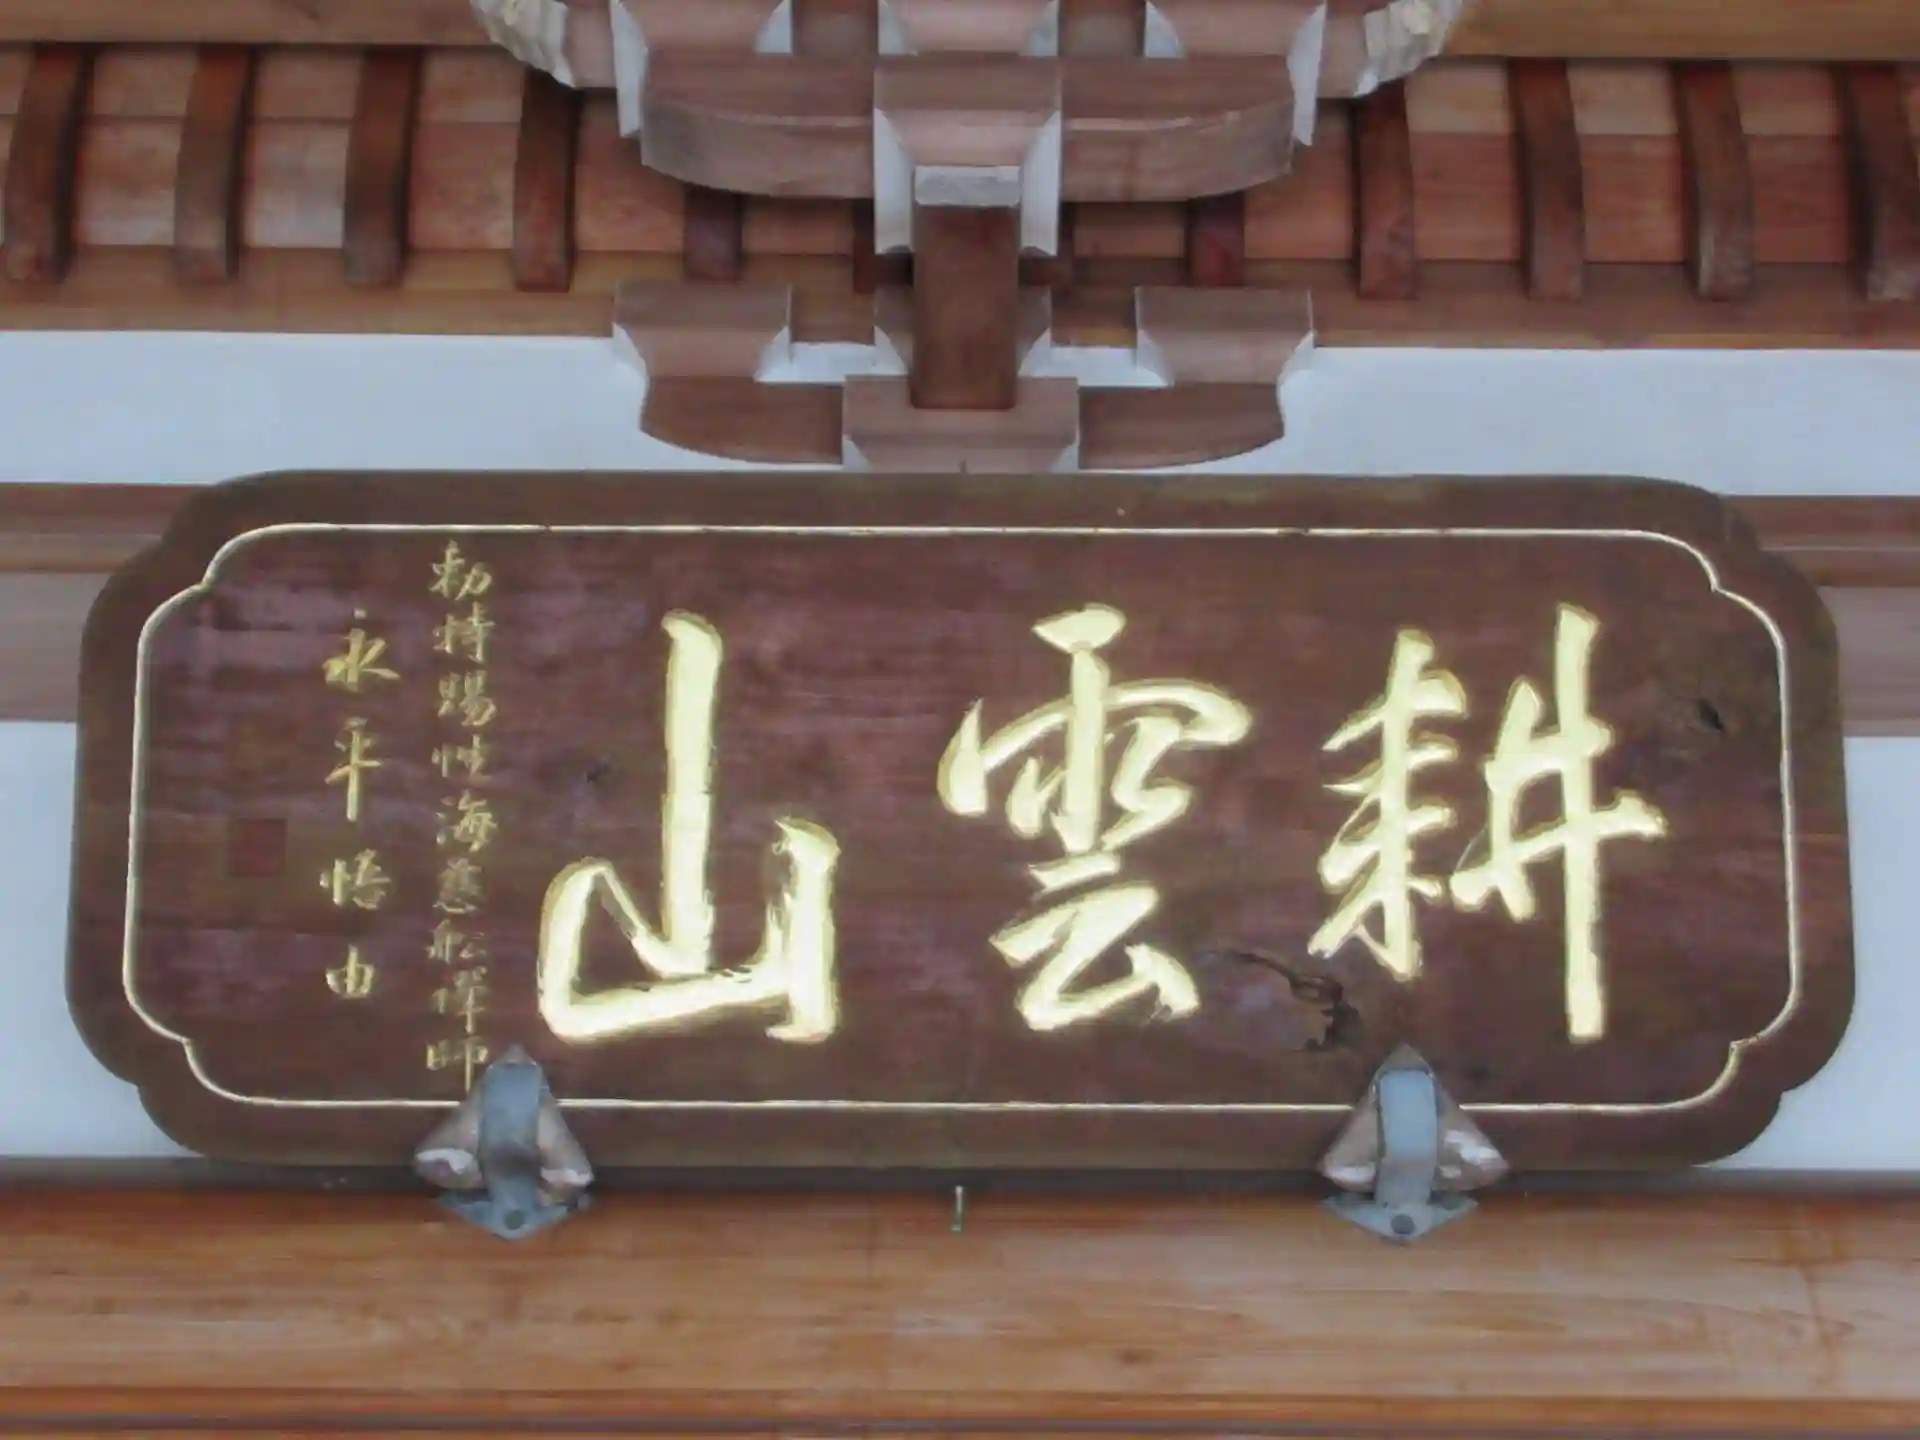 耕雲山
勅特賜性海慈船禅師
永平悟由